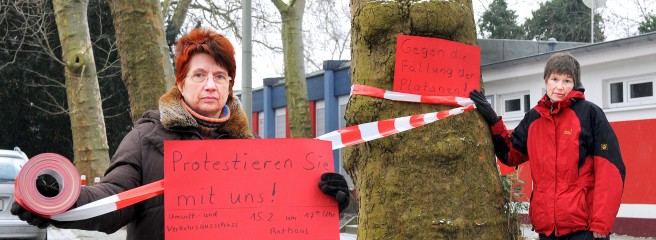 Gegen die
Fällung der
Platanen!
Protestieren Sie
mit uns!
Umwelt- und 15.2 um 17°° Uhr
Verkehrsausschuss Rathaus